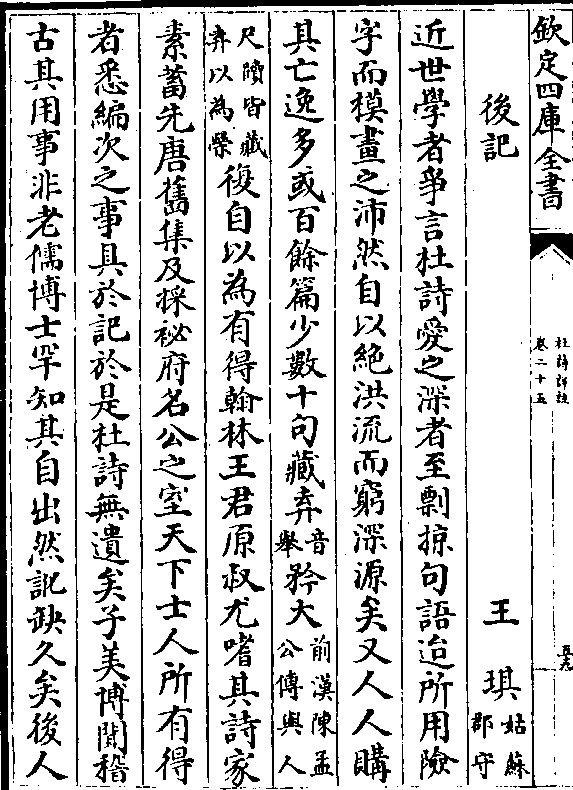 欽定四庫全書
杜詩詳註
卷二十五
後記 王琪 姑蘇郡守
近世學者爭言杜詩愛之深者至剽掠句語迨所用險
字而模畫之沛然自以絕洪流而窮深源矣又人人購
其亡逸多或百餘篇少數十句藏弆音舉矜大前漢陳孟公傳與人
尺牘皆藏弆以為榮復自以為有得翰林王君原叔尤嗜其詩家
素蓄先唐舊集及採祕府名公之室天下士人所有得
者悉編次之事具於記於是杜詩無遺矣子美博聞稽
古其用事非老儒博士罕知其自出然訛缺久矣後人